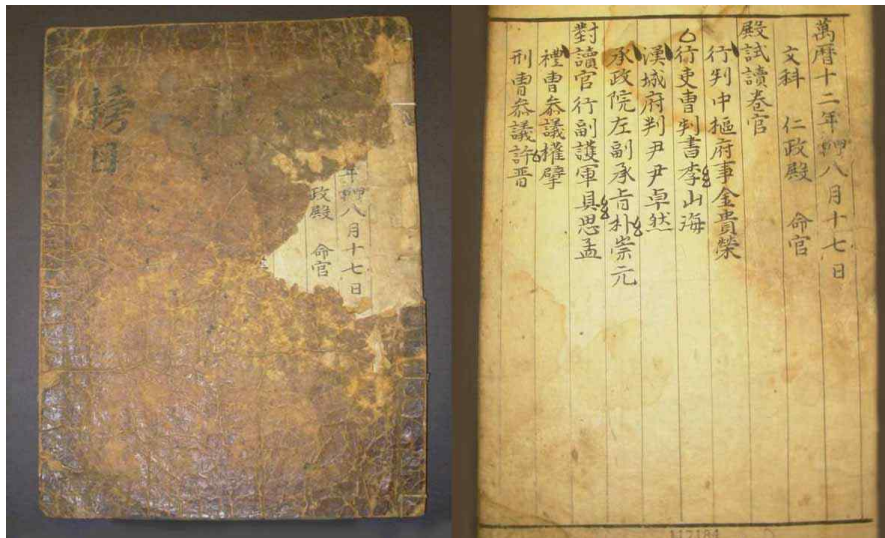 榜目
年甲申八月十七日
政殿 命官
萬暦十二年甲申八月十七日
文科 仁政殿 命官
殿試讀卷官
行判中樞府事金貴榮
行吏曹判書李山海
漢城府判尹尹卓然
承政院左副承旨朴崇元
對讀官行副護軍具思孟
禮曹叅議權擘
刑曹叅議許晋
117184